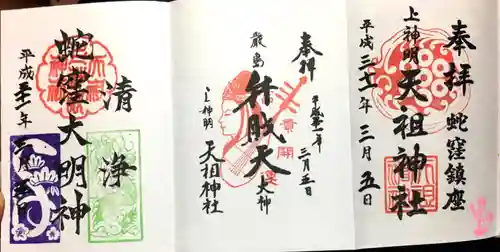 奉拝
蛇窪鎮座
上神明
天祖神社
平成三十一年三月五日
奉拝
平成卅一年
三月五日
厳島
弁財天
大神
上神明
天祖神社
清浄
蛇窪大明神
平成三十一年三月五日